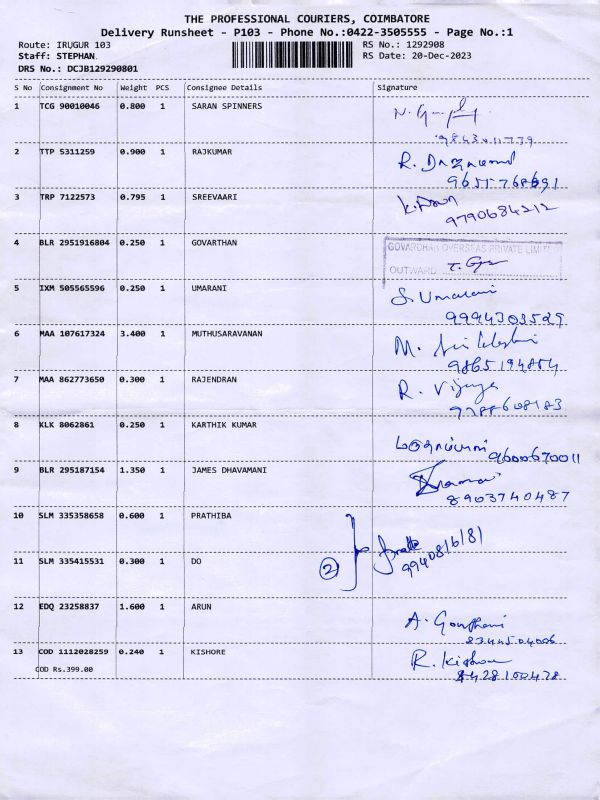 THE PROFESSIONAL COURIERS, COIMBATORE
Delivery Runsheet - P103 - Phone No.:0422-3505555 - Page No.:1
Route: IRUGUR 103 RS No.: 1292908
Staff: STEPHAN. RS Date: 20-Dec-2023
DRS No.: DCJB129290801
S No Consignment No Weight PCS Consignee Details Signature
1 TCG 90010046 0.800 1 SARAN SPINNERS
2 TTP 5311259 0.900 1 RAJKUMAR
R.
3 TRP 7122573 0.795 1 SREEVAARI
9790684212
4 BLR 2951916804 0.250 1 GOVARTHAN
GOVARDHAN OVERSEAS PRIVATE LIMIT
OUTWARD
5 IXM 505565596 0.250 1 UMARANI
S. Umarani
9994303529
6 MAA 107617324 3.400 1 MUTHUSARAVANAN
M.
7 MAA 862773650 0.300 1 RAJENDRAN
R. Vijaya
8 KLK 8062861 0.250 1 KARTHIK KUMAR
9600670011
9 BLR 295187154 1.350 1 JAMES DHAVAMANI
8903740487
10 SLM 335358658 0.600 1 PRATHIBA
11 SLM 335415531 0.300 1 DO
2
12 EDQ 23258837 1.600 1 ARUN
A.
8344504006
13 COD 1112028259 0.240 1 KISHORE
COD Rs.399.00
R. Kishore
8428100478